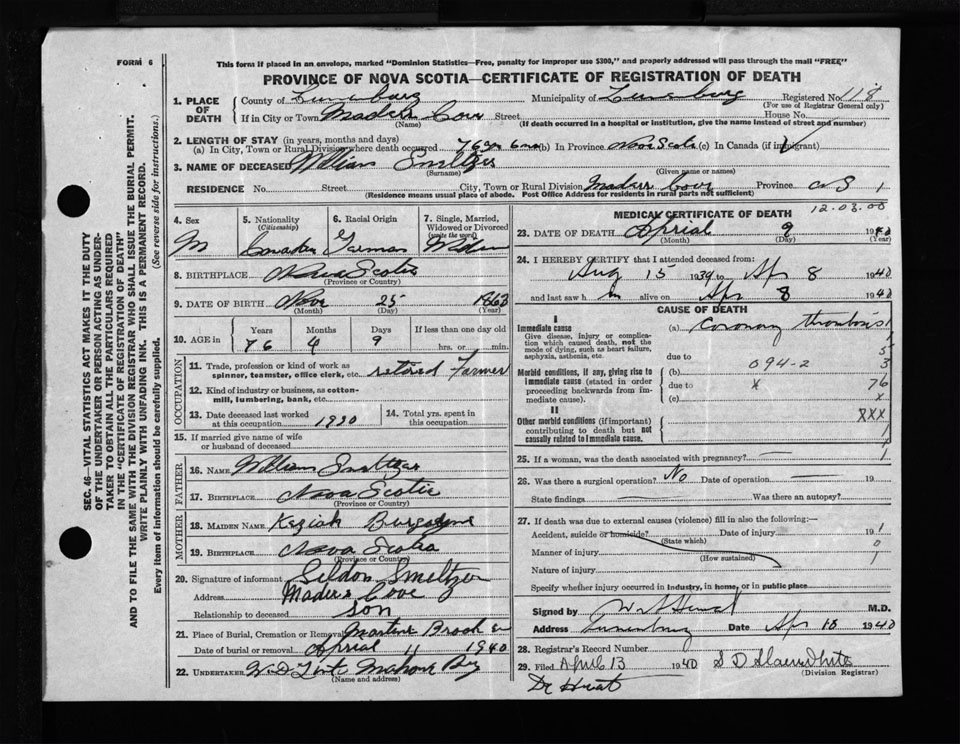 FORM 6
This form if placed in an envelope, marked "Dominion Statistics—Free, penalty for improper use $300," and properly addressed will pass through the mail "FREE"
PROVINCE OF NOVA SCOTIA—CERTIFICATE OF REGISTRATION OF DEATH
SEC. 46— VITAL STATISTICS ACT MAKES IT THE DUTY
OF THE UNDERTAKER OR PERSON ACTING AS UNDER-
TAKER TO OBTAIN ALL THE PARTICULARS REQUIRED
IN THE "CERTIFICATE OF REGISTRATION OF DEATH"
AND TO FILE THE SAME WITH THE DIVISION REGISTRAR WHO SHALL ISSUE THE BURIAL PERMIT.
WRITE PLAINLY WITH UNFADING INK. THIS IS A PERMANENT RECORD.
Every item of information should be carefully supplied. (See reverse side for instructions.)
1. PLACE OF DEATH
County of Lunenburg Municipality of Lunenburg Registered No. 118
(For use of Registrar General only)
If in City or Town Maders Cove Street House No.
(Name) (If death occurred in a hospital or institution, give the name instead of street and number)
2. LENGTH OF STAY (in years, months and days)
(a) In City, Town or Rural Division where death occurred 76 yrs 6 mo (b) In Province Nova Scotia (c) In Canada (if immigrant)
3. NAME OF DECEASED William Smeltzer
(Surname) (Given name or names)
RESIDENCE No. Street City, Town or Rural Division Maders Cove Province N S 1
(Residence means usual place of abode. Post Office Address for residents in rural parts not sufficient)
4. Sex M
5. Nationality (Citizenship) Canadian
6. Racial Origin German
7. Single, Married, Widowed or Divorced (write the word)
8. BIRTHPLACE Nova Scotia
(Province or Country)
9. DATE OF BIRTH Nov 25 1863
(Month) (Day) (Year)
10. AGE in Years Months Days If less than one day old
76 4 9 hrs. or min.
OCCUPATION
11. Trade, profession or kind of work as spinner, teamster, office clerk, etc. retired Farmer
12. Kind of industry or business, as cotton-mill, lumbering, bank, etc.
13. Date deceased last worked at this occupation 1930
14. Total yrs. spent in this occupation
15. If married give name of wife or husband of deceased
FATHER
16. NAME William Smeltzer
17. BIRTHPLACE Nova Scotia
(Province or Country)
MOTHER
18. MAIDEN NAME Keziah Burgoyne
19. BIRTHPLACE Nova Scotia
(Province or Country)
20. Signature of informant Seldon Smeltzer
Address Maders Cove
Relationship to deceased son
21. Place of Burial, Cremation or Removal
Date of burial or removal Aprial 11 1940
22. UNDERTAKER Mahone Bay
(Name and address)
12.03.00
MEDICAL CERTIFICATE OF DEATH
23. DATE OF DEATH Aprial 9 1940
(Month) (Day) (Year)
24. I HEREBY CERTIFY that I attended deceased from:
Aug 15 1939 to Ap 8 1940
and last saw h m alive on Apr 8 1940
CAUSE OF DEATH
I
Immediate cause
Give disease, injury or complication which caused death, not the mode of dying, such as heart failure, asphyxia, asthenia, etc.
(a) Coronary thrombosis 1
5
due to
Morbid conditions, if any, giving rise to immediate cause (stated in order proceeding backwards from immediate cause).
(b) 094-2 3
due to x 76
(c) x
II
XXX
Other morbid conditions (if important) contributing to death but not causally related to immediate cause.
1
25. If a woman, was the death associated with pregnancy? 1
26. Was there a surgical operation? No Date of operation 19
State findings Was there an autopsy?
27. If death was due to external causes (violence) fill in also the following:—
Accident, suicide or homicide? Date of injury 19 1
(State which) 0
Manner of injury 1
(How sustained)
Nature of injury
Specify whether injury occurred in industry, in home, or in public place
Signed by M.D.
Address Lunenburg Date Ap 10 1940
28. Registrar's Record Number
29. Filed April 13 1940
(Division Registrar)